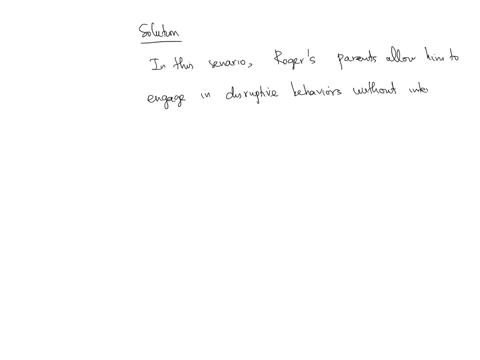 Solution
In this senario, Roger's parents allow him to
engage in disruptive behaviors without inte